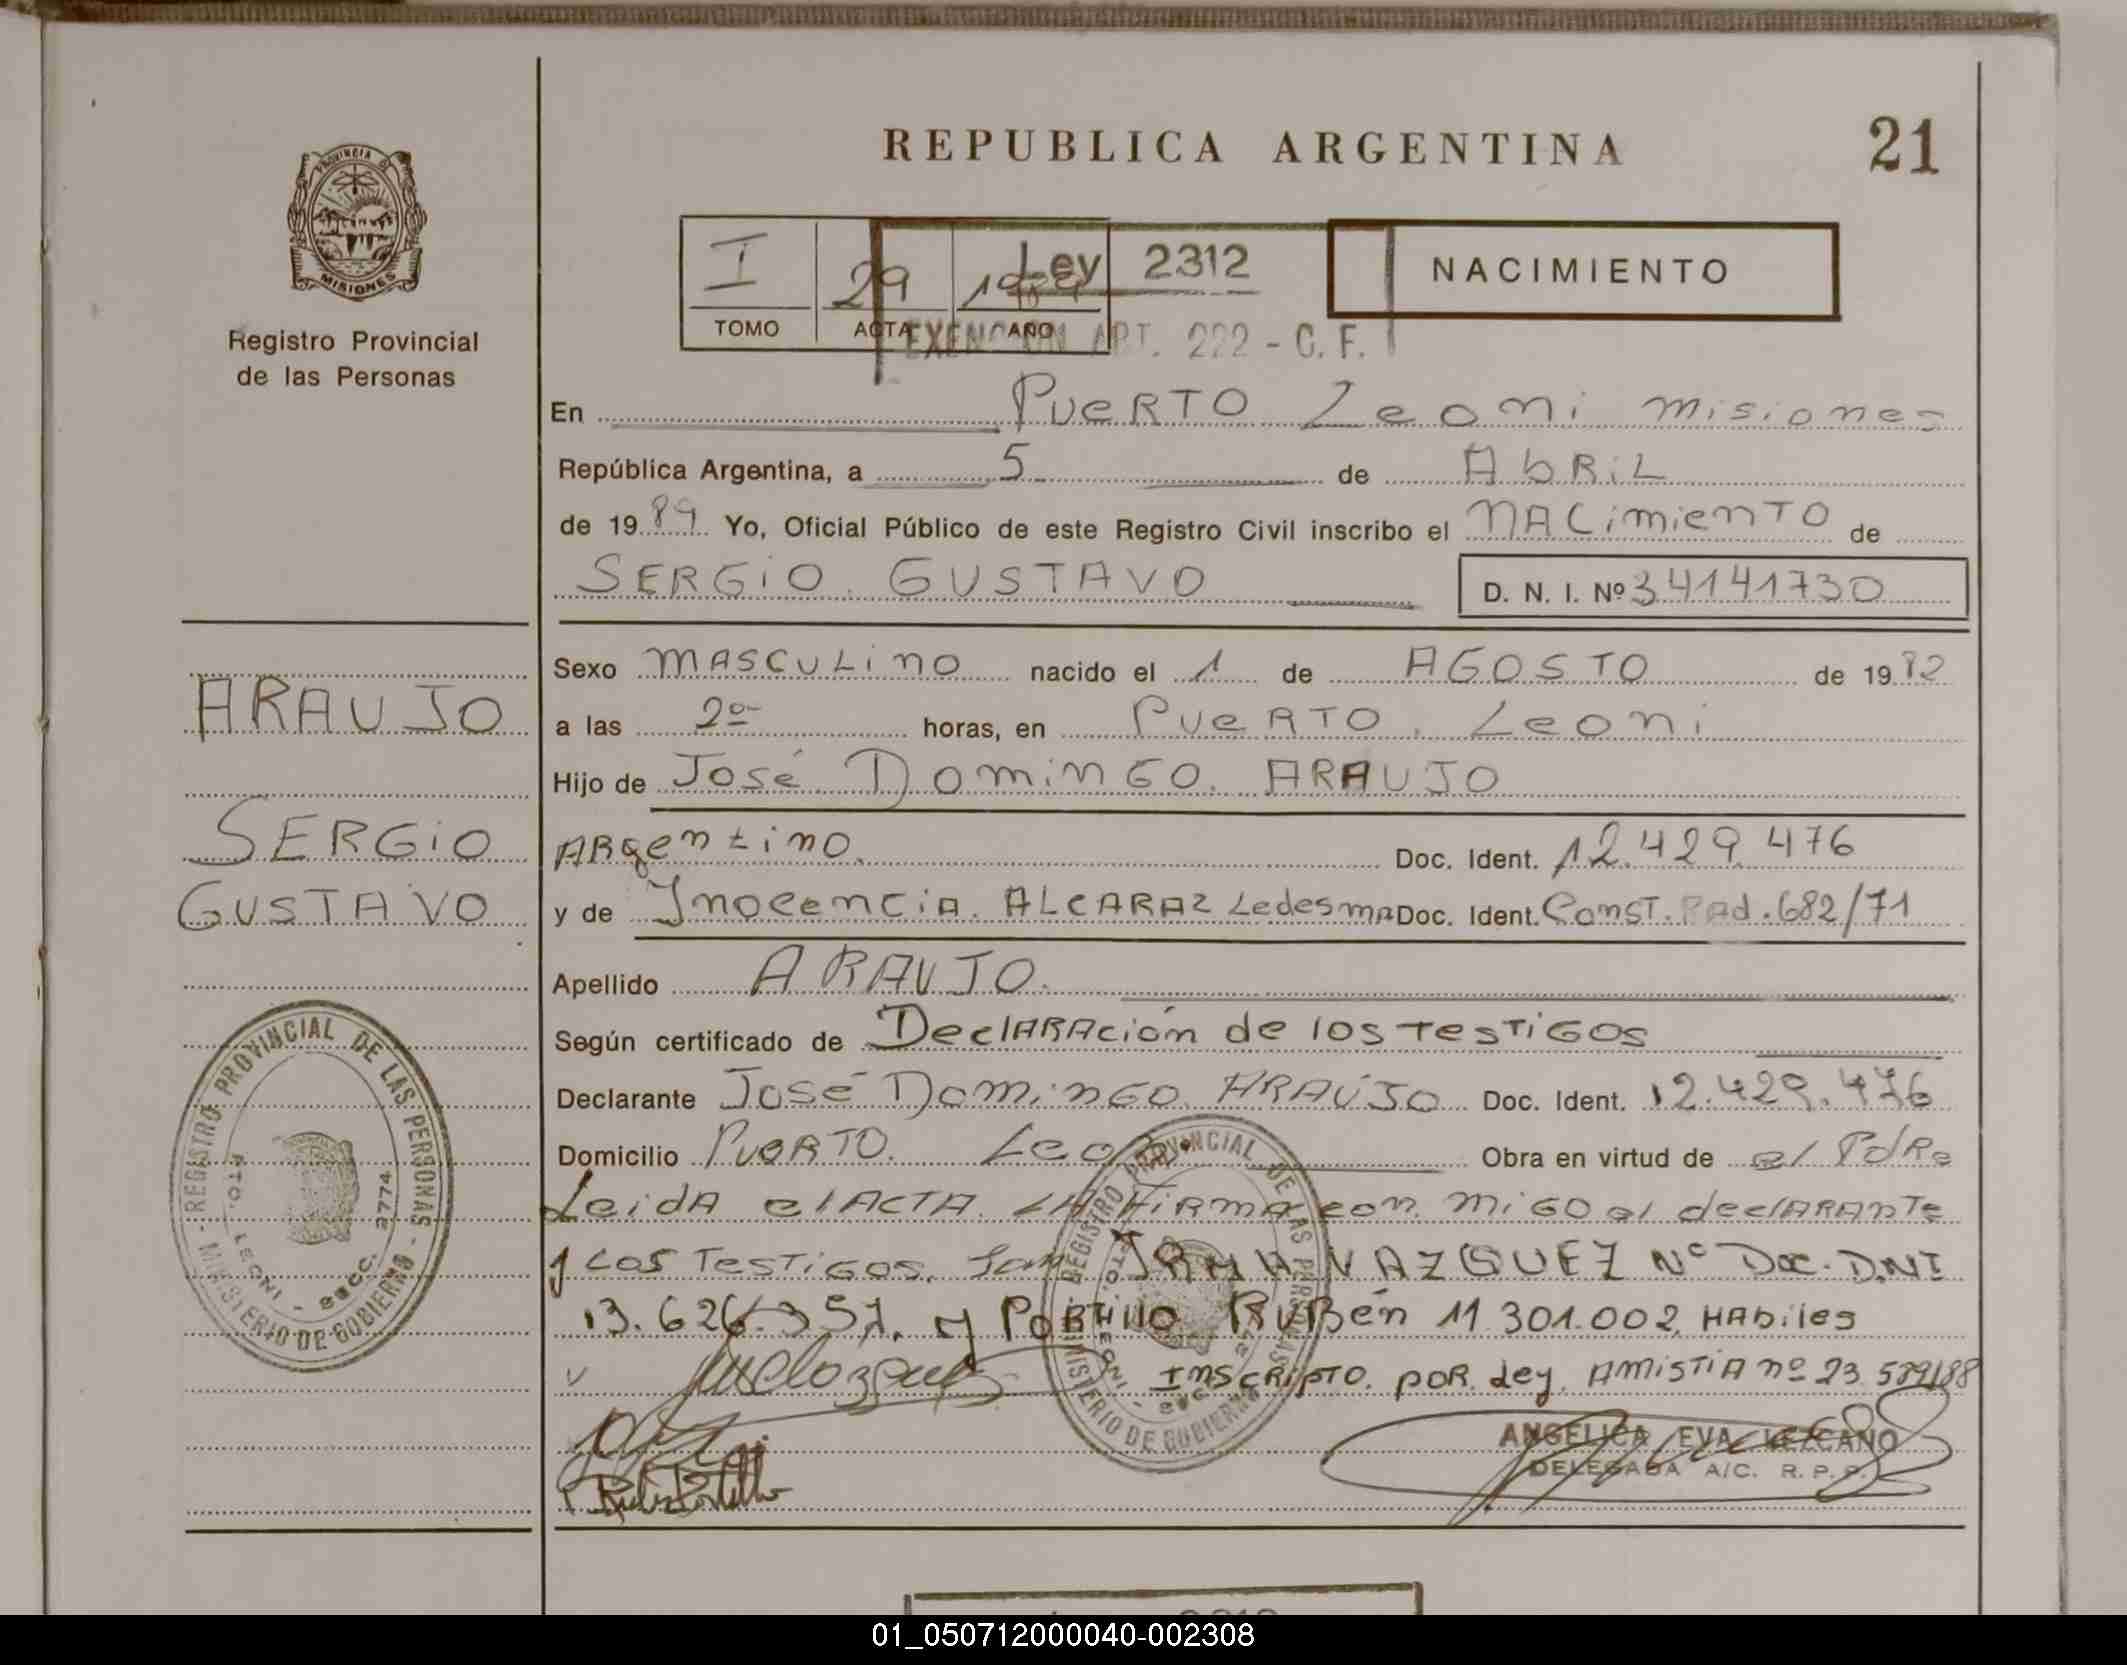 REPUBLICA ARGENTINA
21
PROVINCIA D
MISIONES
Registro Provincial
de las Personas
I 29 1989
TOMO ACTA AÑO
Ley 2312
EXENCION ART. 222 - C. F.
NACIMIENTO
En Puerto Leoni misiones
República Argentina, a 5 de Abril
de 1989 Yo, Oficial Público de este Registro Civil inscribo el NACimiento de
SERGiO GUSTAVO
D. N. I. Nº 34141730
Sexo MASCULiNO nacido el 1 de AGOSTO de 1982
a las horas, en Puerto Leoni
Hijo de José DominGO ARAUJO
ARgentino. Doc. Ident. 12.429.476
y de Inocencia ALCARAZ Ledesma Doc. Ident. Const. Rad. 682/71
Apellido ARAUJO.
Según certificado de DeclARAción de los TesTiGOS
Declarante José DominGO ARAÚJO Doc. Ident. 12.429.476
Domicilio PUERTO Leoni Obra en virtud de el PdRe
LeidA el ACTA LA FiRmA con miGO el declARAnTe
y Los TesTiGOS. Son IRMA VAZQUEZ Nº Doc. DNI
13.626.357. y PORTillo RuBén 11.301.002, HAbiles
INSCRIPTO. POR. Ley. AMISTIA nº 23
ANGELICA EVA LEZCANO
DELEGADA A/C. R. P. P.
ARAUJO
SERGiO
GUSTAVO
REGISTRO PROVINCIAL DE LAS PERSONAS - MINISTERIO DE GOBIERNO -
PTO. LEONI - SECC. 2774
REGISTRO PROVINCIAL DE LAS PERSONAS
MINISTERIO DE GOBIERNO
PTO. LEONI
01_050712000040-002308